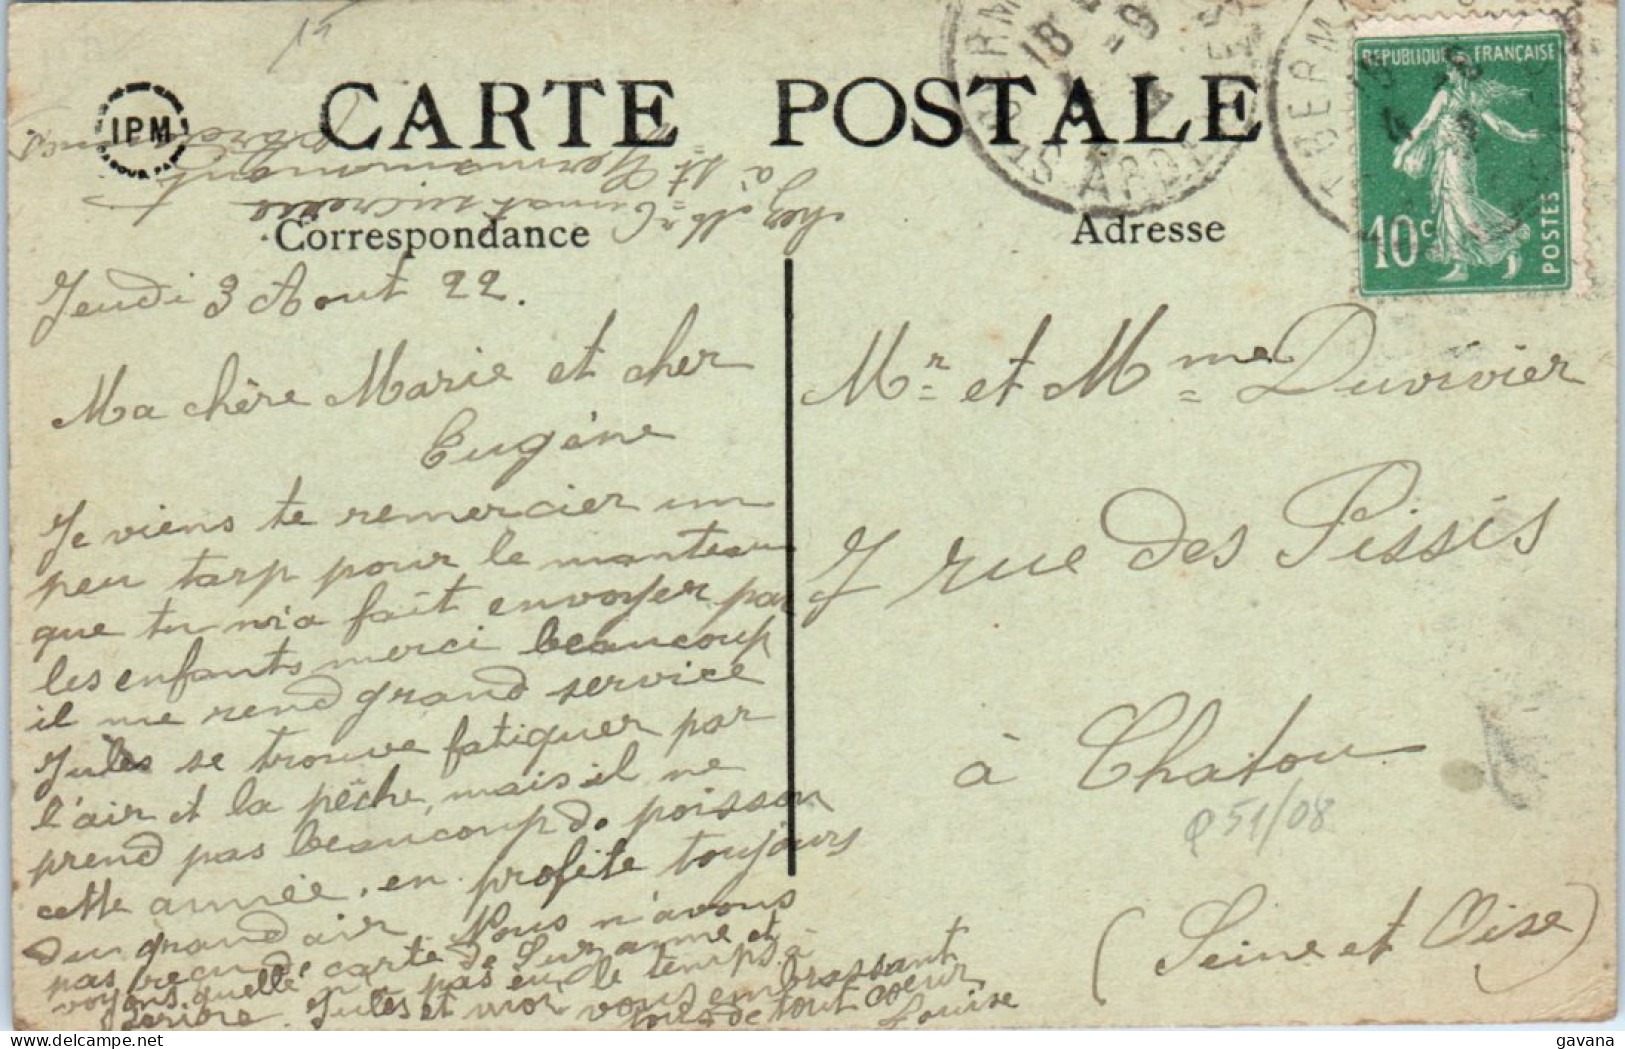 15
IPM
CARTE POSTALE
18
REPUBLIQUE FRANÇAISE
10c
POSTES
chez Mr Cunat sucrerie
à St Germainmont
Ardennes
Correspondance
Adresse
Jeudi 3 Aout 22.
Ma chère Marie et cher
Eugène
Je viens te remercier un
peu tarp pour le manteau
que tu m'a fait envoyer par
les enfants merci beaucoup
il me rend grand service
Jules se trouve fatiguer par
l'air et la pêche, mais il ne
prend pas beaucoup de poisson
cette année, en profite toujours
du grand air. Nous n'avons
pas reçu de carte de Suzanne et
voyons quelle pas eu le temps à
écrire. Jules et moi vous embrassant
tous de tout cœur
Louise
Mr et Mme Duvivier
7 rue des Pissis
à Chatou
φ51/08
(Seine et Oise)
gavana